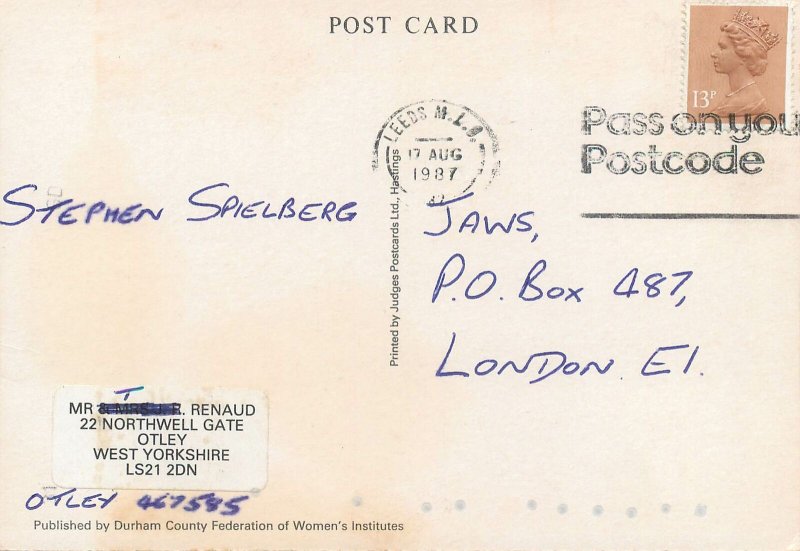 POST CARD
13P
LEEDS M.L.O.
17 AUG
1987
Pass on you
Postcode
STEPHEN SPIELBERG
JAWS,
P.O. BOX 487,
LONDON. E1.
Printed by Judges Postcards Ltd., Hastings
T
MR & MRS J. R. RENAUD
22 NORTHWELL GATE
OTLEY
WEST YORKSHIRE
LS21 2DN
OTLEY 467585
Published by Durham County Federation of Women's Institutes